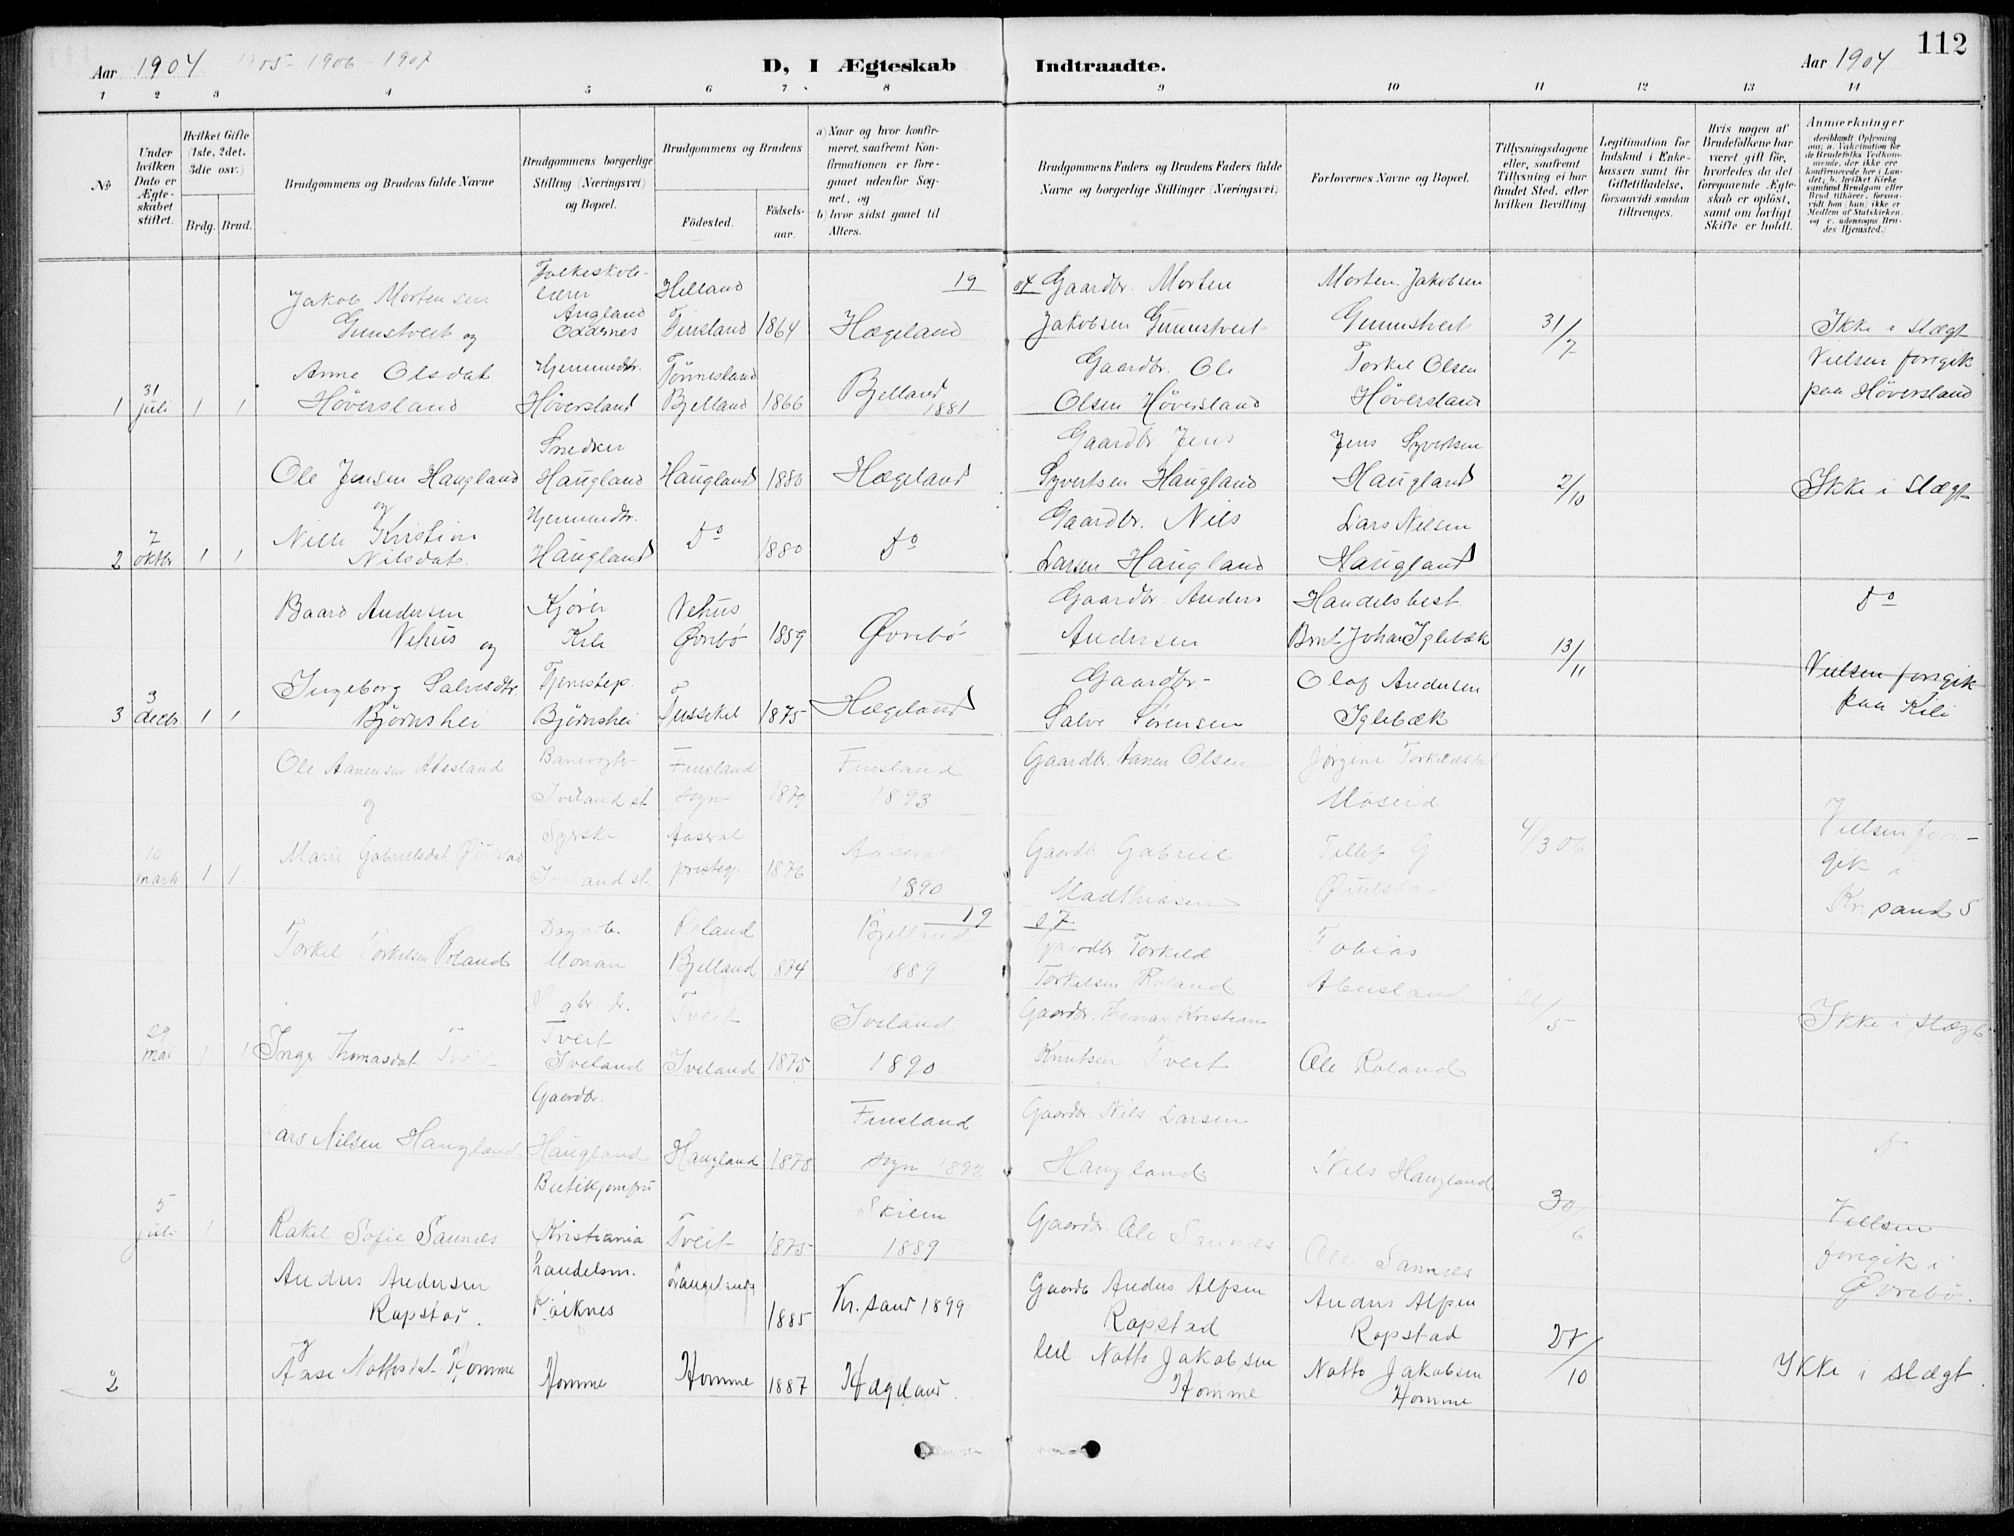 112
Aar 1904 1905 - 1906 - 1907
D, I Ægteskab Indtraadte.
Aar 1904
1 2 3 4 5 6 7 8 9 10 11 12 13 14
No
Under hvilken Dato er Ægteskabet stiftet.
Hvilket Gifte (1ste, 2det, 3die osv.)
Brdg. Brud.
Brudgommens og Brudens fulde Navne
Brudgommens borgerlige Stilling (Næringsvei) og Bopæl.
Brudgommens og Brudens
Fødested. Fødselsaar.
a) Naar og hvor konfirmeret, saafremt Konfirmationen er foregaaet udenfor Sognet, og
b) hvor sidst gaaet til Alters.
Brudgommens Faders og Brudens Faders fulde Navne og borgerlige Stillinger (Næringsvei)
Forlovernes Navne og Bopæl.
Tillysningsdagene eller, saafremt Tillysning ei har fundet Sted, efter hvilken Bevilling
Legitimation for Indskud i Enkekassen samt for Giftetilladelse, forsaavidt saadan tiltrænges.
Hvis nogen af Brudefolkene har været gift før, hvorledes da det foregaaende Ægteskab er opløst, samt om lovligt Skifte er holdt.
Anmærkninger
19 04
Jakob Mortensen Gunstveit og
Folkeskolelærer Augland Oddernes
Helland Finsland 1864
Hægeland
Gaardbr. Morten Jakobsen Gunnstveit
Morten Jakobsen Gunnstveit
31/7
Ikke i Slægt
1 31 juli 1 1
Anne Olsdat Høversland
Hjemmedtr. Høversland
Tønnesland Bjelland 1866
Bjelland 1881
Gaardbr. Ole Olsen Høversland
Torkel Olsen Høversland
Vielsen foregik paa Høversland
Ole Jensen Haugland og
Snedker Haugland
Haugland 1880
Hægeland
Gaardbr Jens Syvertsen Haugland
Jens Syvertsen Haugland
2/10
Ikke i Slægt
2 7 oktbr 1 1
Nille Kristin Nilsdat.
Hjemmedtr. Haugland
Do 1880
Do
Gaardbr. Nils Larsen Haugland
Lars Nilsen Haugland
Baard Andersen Vehus og
Kjører Kile
Vehus Øvrebø 1859
Øvrebø
Gaardbr. Anders Andersen
Handelsbest. Johan Iglebæk
13/11
Do
3 3 decbr 1 1
Ingeborg Salvesdtr. Bjørnshei
Tjenestep. Bjørnshei
1875
Hægeland
Gaardbr. Salve Sørensen
Olaf Andersen Iglebæk
Vielsen foregik paa Kile
Ole Aanensen Abesland og
Banevogter Iveland st.
Finsland sogn 1879
Finsland 1893
Gaardbr. Aanen Olsen
Jørgine Møseid
4/3 06
10 marts 1 1
Marie Gabrielsdat.
Syerske Iveland st.
Aaseral prestegj. 1876
Aaseral 1890
Gaardb. Gabriel Madthiasen
Tellef G
Vielsen foregik i Kr. sand S
19 07
Torkel Torkelsen Roland
Roland Bjelland 1874
Bjelland 1889
Gaardbr Torkild Torkelsen Roland
Tobias Abusland
/5
Ikke i Slægt
29 mai 1 1
Inger Thomasdat Tveit
Tveit Iveland
Tveit Iveland 1875
Iveland 1890
Gaardbr. Thomas Kristian Knutsen Tveit
Ole Roland
Lars Nilsen Haugland
Gaardbr. Haugland
Haugland 1878
Finsland sogn 1892
Gaardbr Nils Larsen Haugland
Nils Haugland
30/6
Do
5 juli 1
Rakel Sofie Sannes
Butikjomfru Kristiania
Tveit 1875
Skien 1889
Gaardbr. Ole Sannes
Ole Sannes
Vielsen foregik i Øvrebø.
Anders Andersen Rapstad. og
Handelsm.
1885
Kr. sand 1899
Gaardb Anders Alfsen Rapstad
Anders Alfsen Rapstad
27/10
Ikke i Slægt
2
Aase Nottosdat Homme
Homme
Homme 1887
Hægeland.
Leil. Notto Jakobsen Homme
Notto Jakobsen Homme